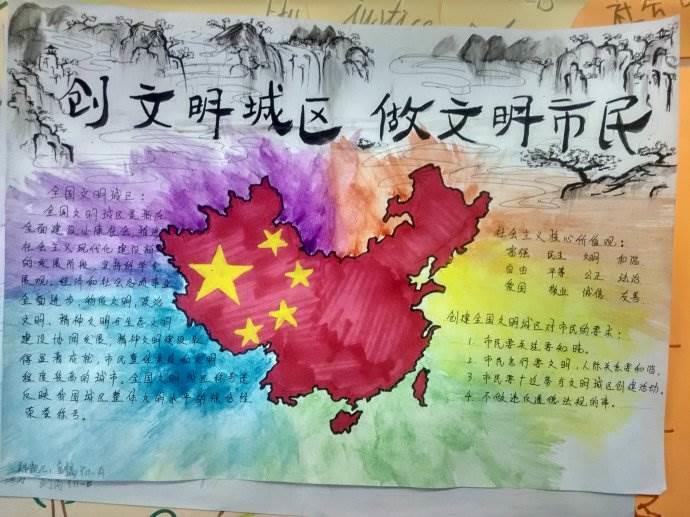 创文明城区 做文明市民
全国文明城区：
全国文明城区是指在
全面建设小康社会，推进
社会主义现代化建设新
的发展阶段，坚持科学发
展观，经济和社会各项事业
全面进步，物质文明、政治
文明、精神文明与生态文明
建设协调发展，精神文明建设取
得显著成就，市民整体素质和文明
程度较高的城市。全国文明城区称号是
反映我国城区整体文明水平的综合性
荣誉称号。
社会主义核心价值观：
富强 民主 文明 和谐
自由 平等 公正 法治
爱国 敬业 诚信 友善
创建全国文明城区对市民的要求：
1. 市民要关注要知晓。
2. 市民言行要文明，人际关系要和谐。
3. 市民要十过参与文明城区创建活动。
4. 不做违反道德法规的事。
justice